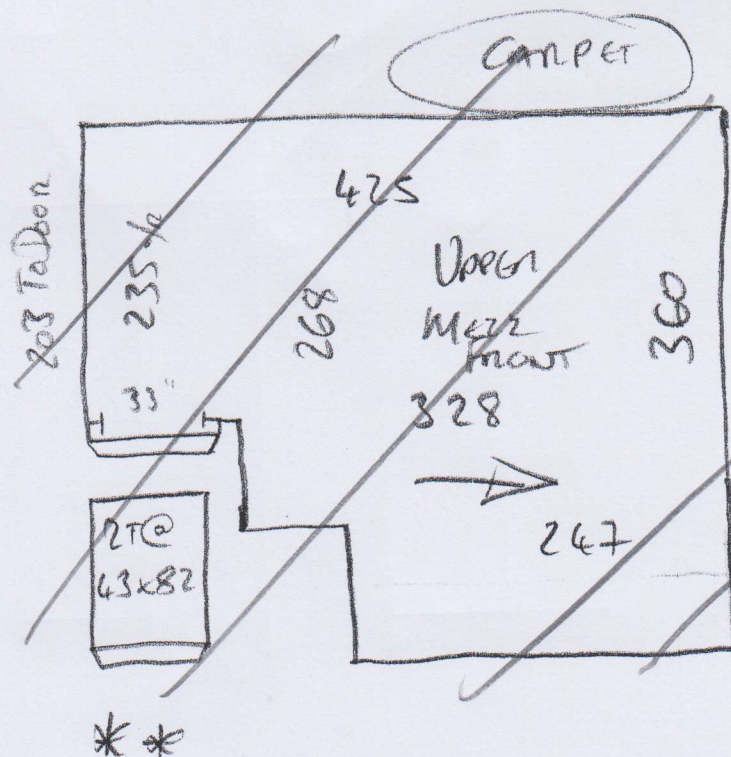 CARPET
425
203 To Door
235 1/2
268
UPPER
MEZZ
FRONT
360
33"
328
247
2T@
43x82
**